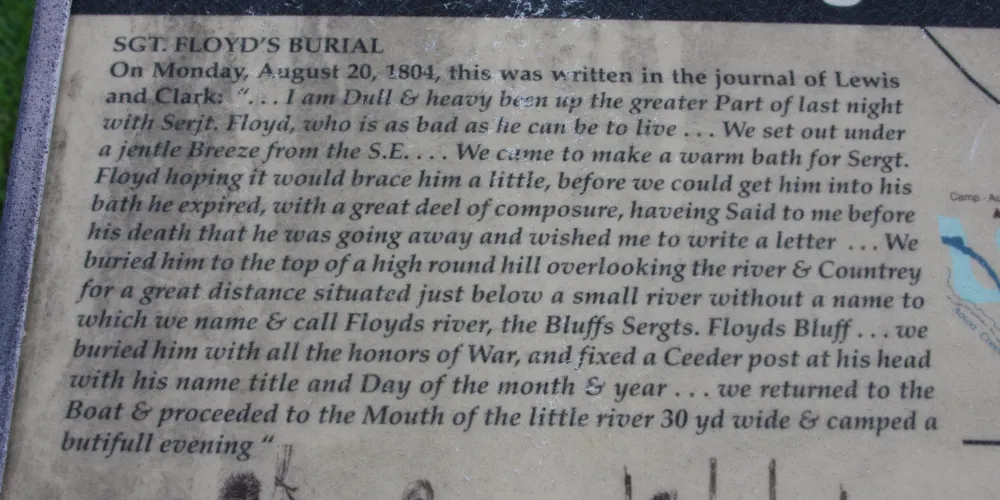 SGT. FLOYD'S BURIAL
On Monday, August 20, 1804, this was written in the journal of Lewis
and Clark: "... I am Dull & heavy been up the greater Part of last night
with Serjt. Floyd, who is as bad as he can be to live ... We set out under
a jentle Breeze from the S.E. ... We came to make a warm bath for Sergt.
Floyd hoping it would brace him a little, before we could get him into his
bath he expired, with a great deel of composure, haveing Said to me before
his death that he was going away and wished me to write a letter ... We
buried him to the top of a high round hill overlooking the river & Countrey
for a great distance situated just below a small river without a name to
which we name & call Floyds river, the Bluffs Sergts. Floyds Bluff ... we
buried him with all the honors of War, and fixed a Ceeder post at his head
with his name title and Day of the month & year ... we returned to the
Boat & proceeded to the Mouth of the little river 30 yd wide & camped a
butifull evening "
Camp